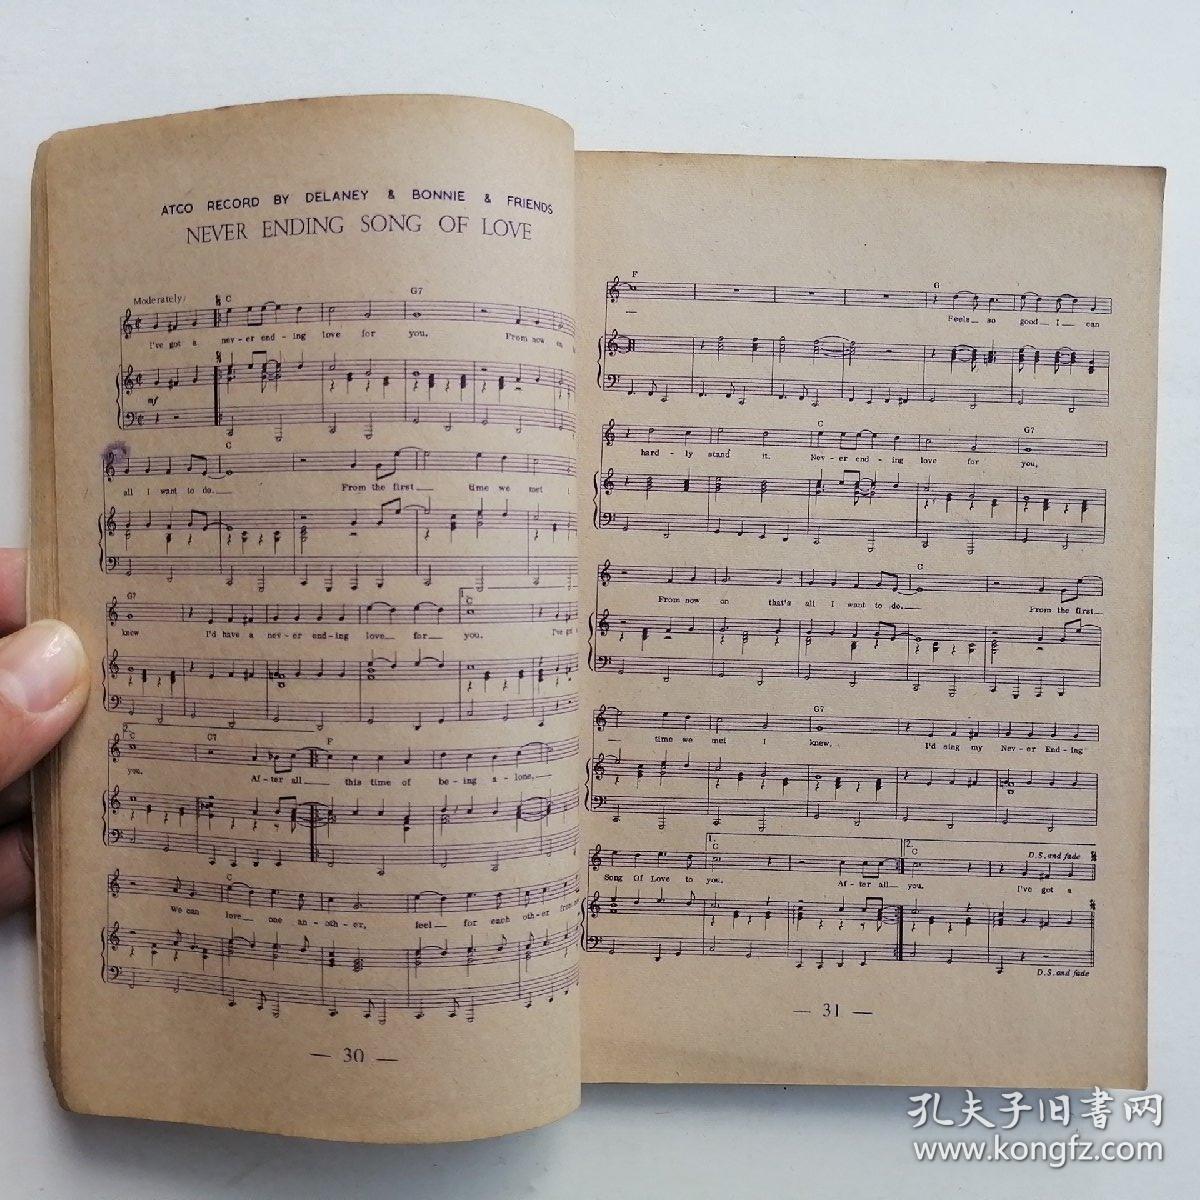 ATCO RECORD BY DELANEY & BONNIE & FRIENDS
NEVER ENDING SONG OF LOVE
Moderately
C G7
I've got a nev-er end-ing love for you. From now on
mf
C
all I want to do. From the first time we met I
G7 1. C
knew I'd have a nev-er end-ing love for you. I've got
2. C C7 F
you. Af-ter all this time of be-ing a-lone,
C
We can love one an-oth-er, feel for each oth-er from
— 30 —
F G
Feels so good I can
C G7
hard-ly stand it. Nev-er end-ing love for you,
C
From now on that's all I want to do. From the first
G7
time we met I knew, I'd sing my Nev-er End-ing
1. G 2. C D.S. and fade
Song Of Love to you. Af-ter all you. I've got a
D.S. and fade
— 31 —
孔夫子旧书网
www.kongfz.com